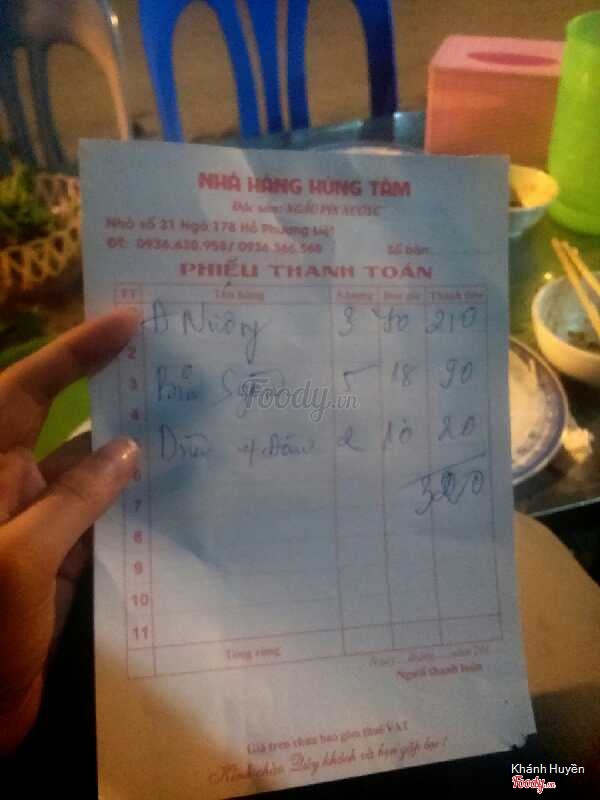 NHÀ HÀNG HÙNG TÂM
Đặc sản: NGẬU PÍN NƯỚNG
Nhà số 31 Ngõ 178 Hồ Phương Liệt
ĐT: 0936.630.958/ 0936.366.568 Số bàn:
PHIẾU THANH TOÁN
TT Tên hàng S.lượng Đơn giá Thành tiền
Nướng 3 70 210
2
3 Bia 5 18 90
4
Dừa 2 10 20
6
7 320
8
9
10
11
Tổng cộng
Ngày tháng năm 201
Người thanh toán
Giá trên chưa bao gồm thuế VAT
Kính chào Quý khách và hẹn gặp lại!
Foody.vn
Khánh Huyền
Foody.vn